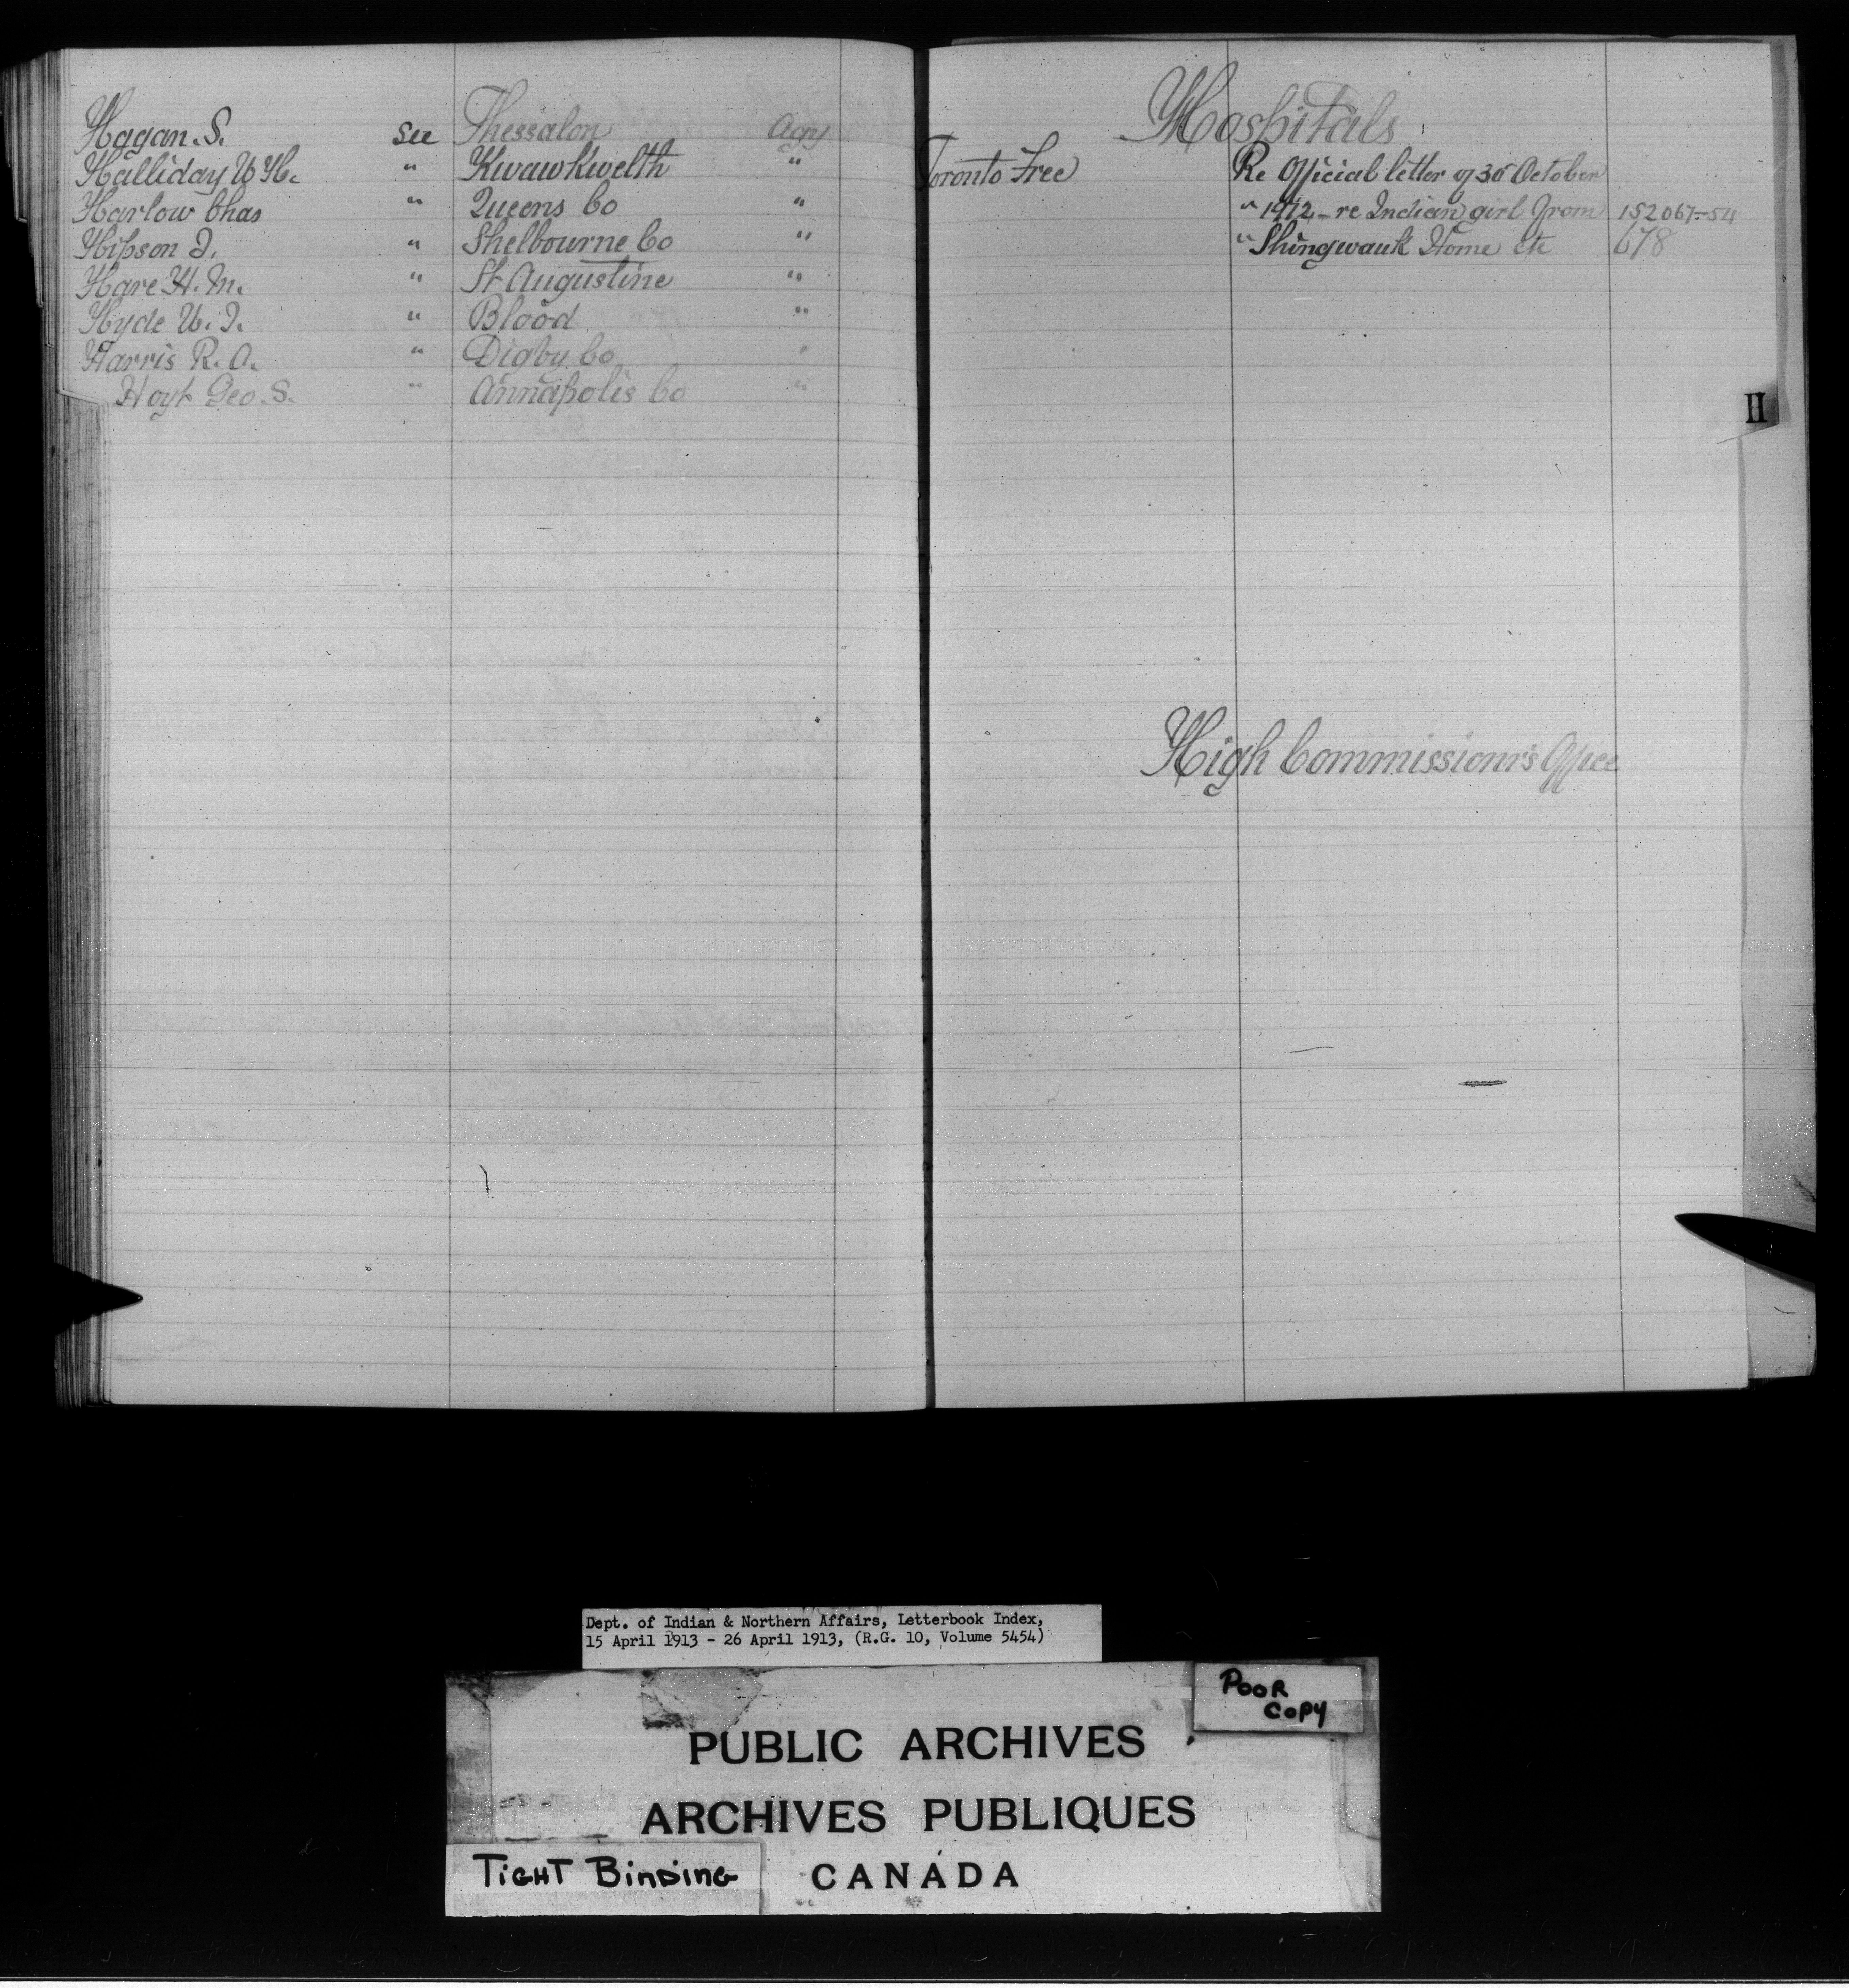 Hagan. S. see Thessalon Agcy
Halliday W. H. " Kwawkwelth "
Harlow Chas " Queens Co "
Hipson J. " Shelbourne Co "
Hare H. M. " St Augustine "
Hyde W. J. " Blood "
Harris R. A. " Digby Co "
Hoyt Geo. S. " Annapolis Co "
Hospitals
Toronto Free Re Official letter of 30 October
" 1912 - re Indian girl from 152067-54
" Shingwauk Home etc 678
H
High Commissionr's Office
Dept. of Indian & Northern Affairs, Letterbook Index,
15 April 1913 - 26 April 1913, (R.G. 10, Volume 5454)
POOR
COPY
PUBLIC ARCHIVES
ARCHIVES PUBLIQUES
TIGHT BINDING
CANADA